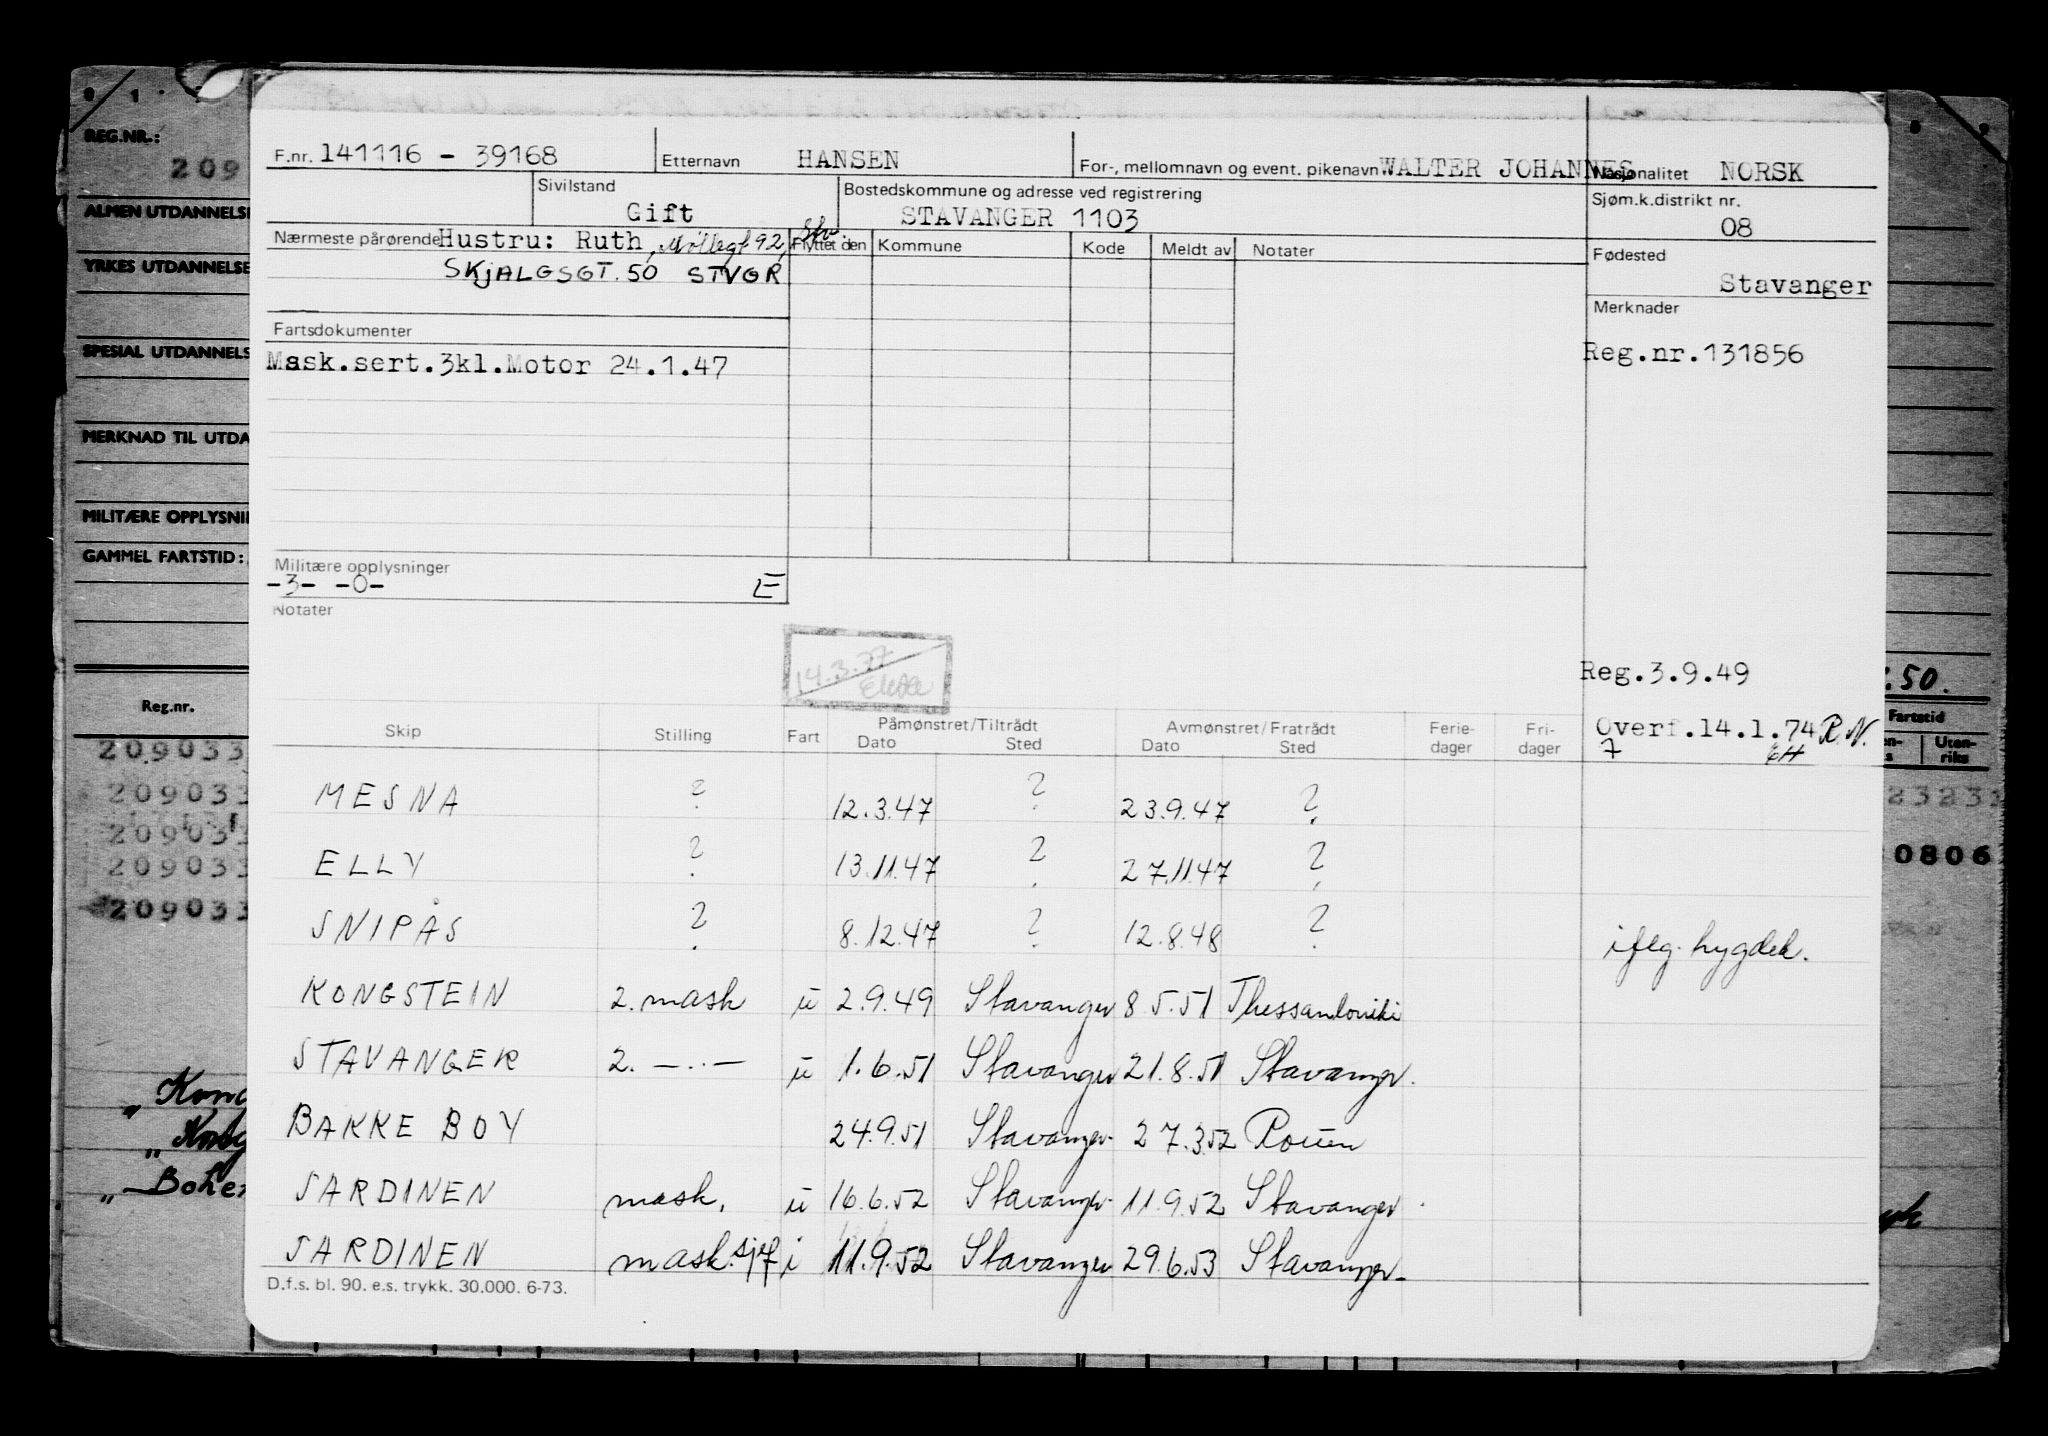 REG.NR.:
209
ALMEN UTDANNELSE
YRKES UTDANNELSE
SPESIAL UTDANNELS
MERKNAD TIL UTDA
MILITÆRE OPPLYSNI
GAMMEL FARTSTID:
Reg.nr.
209033
209033
209033
209033
209033
F.nr. 141116 - 39168 Etternavn HANSEN For-, mellomnavn og event. pikenavn WALTER JOHANNES Nasjonalitet NORSK
Sivilstand Gift Bostedskommune og adresse ved registrering STAVANGER 1103 Sjøm.k.distrikt nr. 08
Nærmeste pårørende Hustru: Ruth, Møllegt 92, Stv. Flyttet den Kommune Kode Meldt av Notater Fødested
SKJALGSGT. 50 STVGR Stavanger
Merknader
Fartsdokumenter
Mask.sert.3kl.Motor 24.1.47 Reg.nr.131856
Militære opplysninger
-3- -0- E
Notater
14.3.77
Reg.3.9.49
Skip Stilling Fart Påmønstret/Tiltrådt Dato Sted Avmønstret/Fratrådt Dato Sted Ferie-dager Fri-dager Overf.14.1.74 R.N.
7
MESNA ? 12.3.47 ? 23.9.47 ?
ELLY ? 13.11.47 ? 27.11.47 ?
SNIPÅS ? 8.12.47 ? 12.8.48 ? iflg. hygdek.
KONGSTEIN 2. mask u 2.9.49 Stavanger 8.5.51 Thessanloniki
STAVANGER 2. —..— u 1.6.51 Stavanger 21.8.51 Stavanger.
BAKKE BOY 24.9.51 Stavanger 27.3.52 Rouen
SARDINEN mask. u 16.6.52 Stavanger 11.9.52 Stavanger
SARDINEN mask.sjef i 11.9.52 Stavanger 29.6.53 Stavanger
D.f.s. bl. 90. e.s. trykk. 30.000. 6-73.
50.
Fartstid
Uten-riks
0806